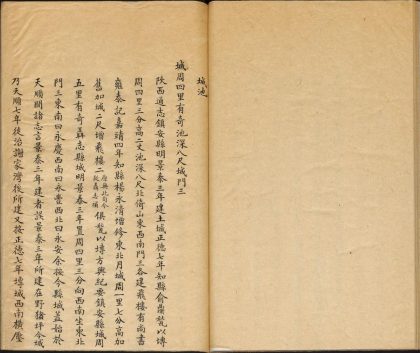 城池
城周四里有奇池深八尺城門三
陝西通志鎮安縣明景泰三年建土城正德七年知縣俞𤩽甃以磚
周四里三分高二丈池深八尺北倚山東西南門三各建飛樓有南書
雍泰記嘉靖四年知縣楊永清增修東北月城周一里七分高加
舊加城二尺增飛樓二 俱甃以磚方輿紀要鎮安縣城周
五里有奇聶志縣城明景泰三年置周四里三分向西南坐東北
門三東南曰永慶西南曰永豐西北曰永安余按今縣城蓋始於
天順聞諸志言景泰三年建者誤景泰三年所建在野豬坪今城
乃天順七年後治謝家灣後所建又按正德七年磚城西南橫壓